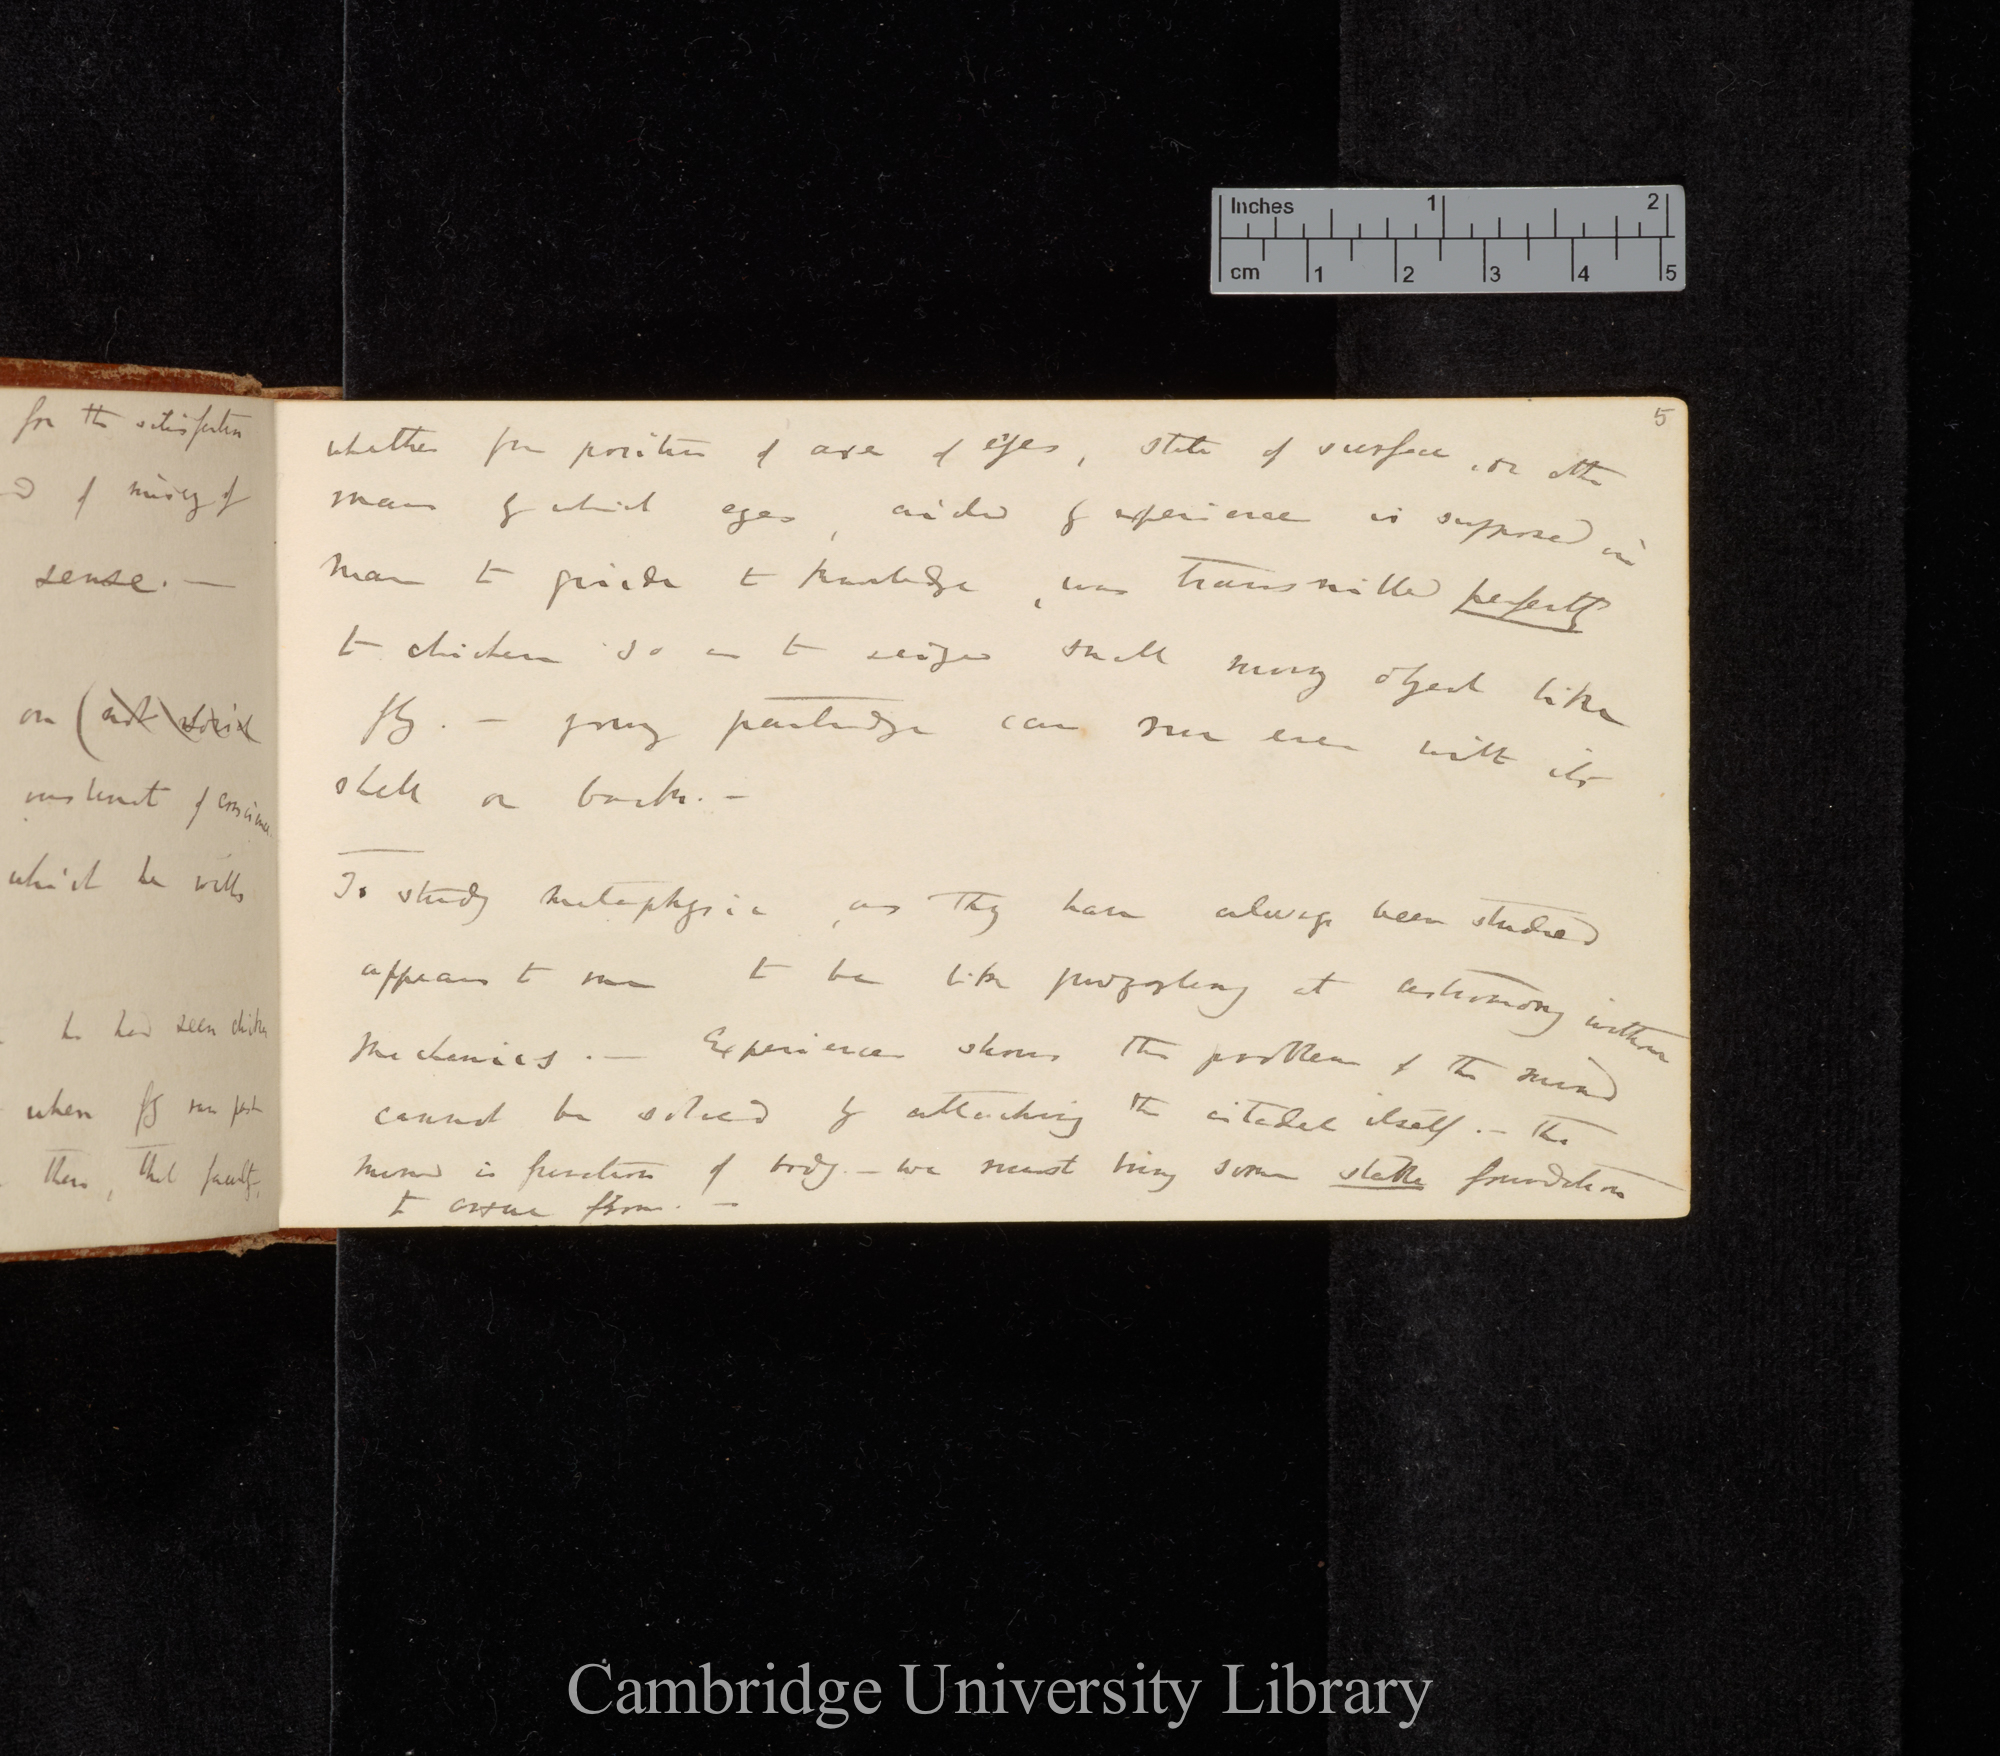 Inches 1 2
cm 1 2 3 4 5
for the satisfaction
of misery of
sense. —
on (not social
instinct of conscience
which he wills
he had seen chicken
when fly ran past
then, that faculty,
5
whether from position of axe of eyes, state of surface, or other
means by which eyes, aided by experience is supposed in
man to guide to knowledge, was transmitted perfectly
to chicken so as to seize small moving object like
fly. — young partridge can run even with its
shell on back. —
To study Metaphysics, as they have always been studied
appears to me to be like puzzling at astronomy without
mechanics. — Experience shows the problem of the mind
cannot be solved by attacking the citadel itself. — the
mind is function of body. — we must bring some stable foundation
to argue from. —
Cambridge University Library